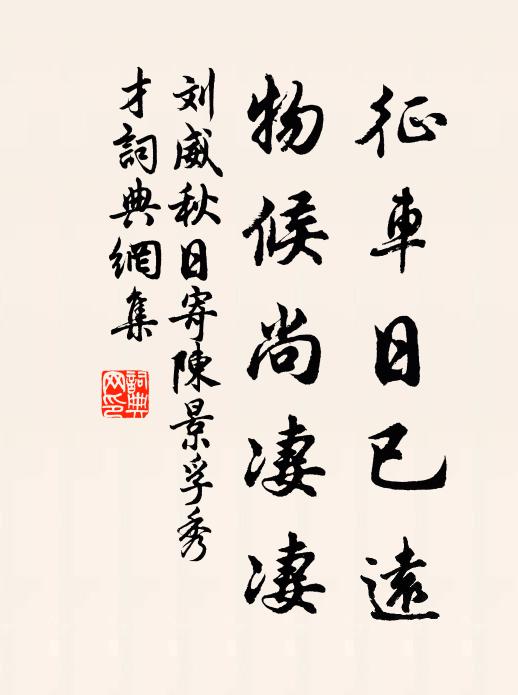 征車日已遠
物候尚淒淒
刘威秋日寄陳景孚秀
才詞典網集
詞典
网印